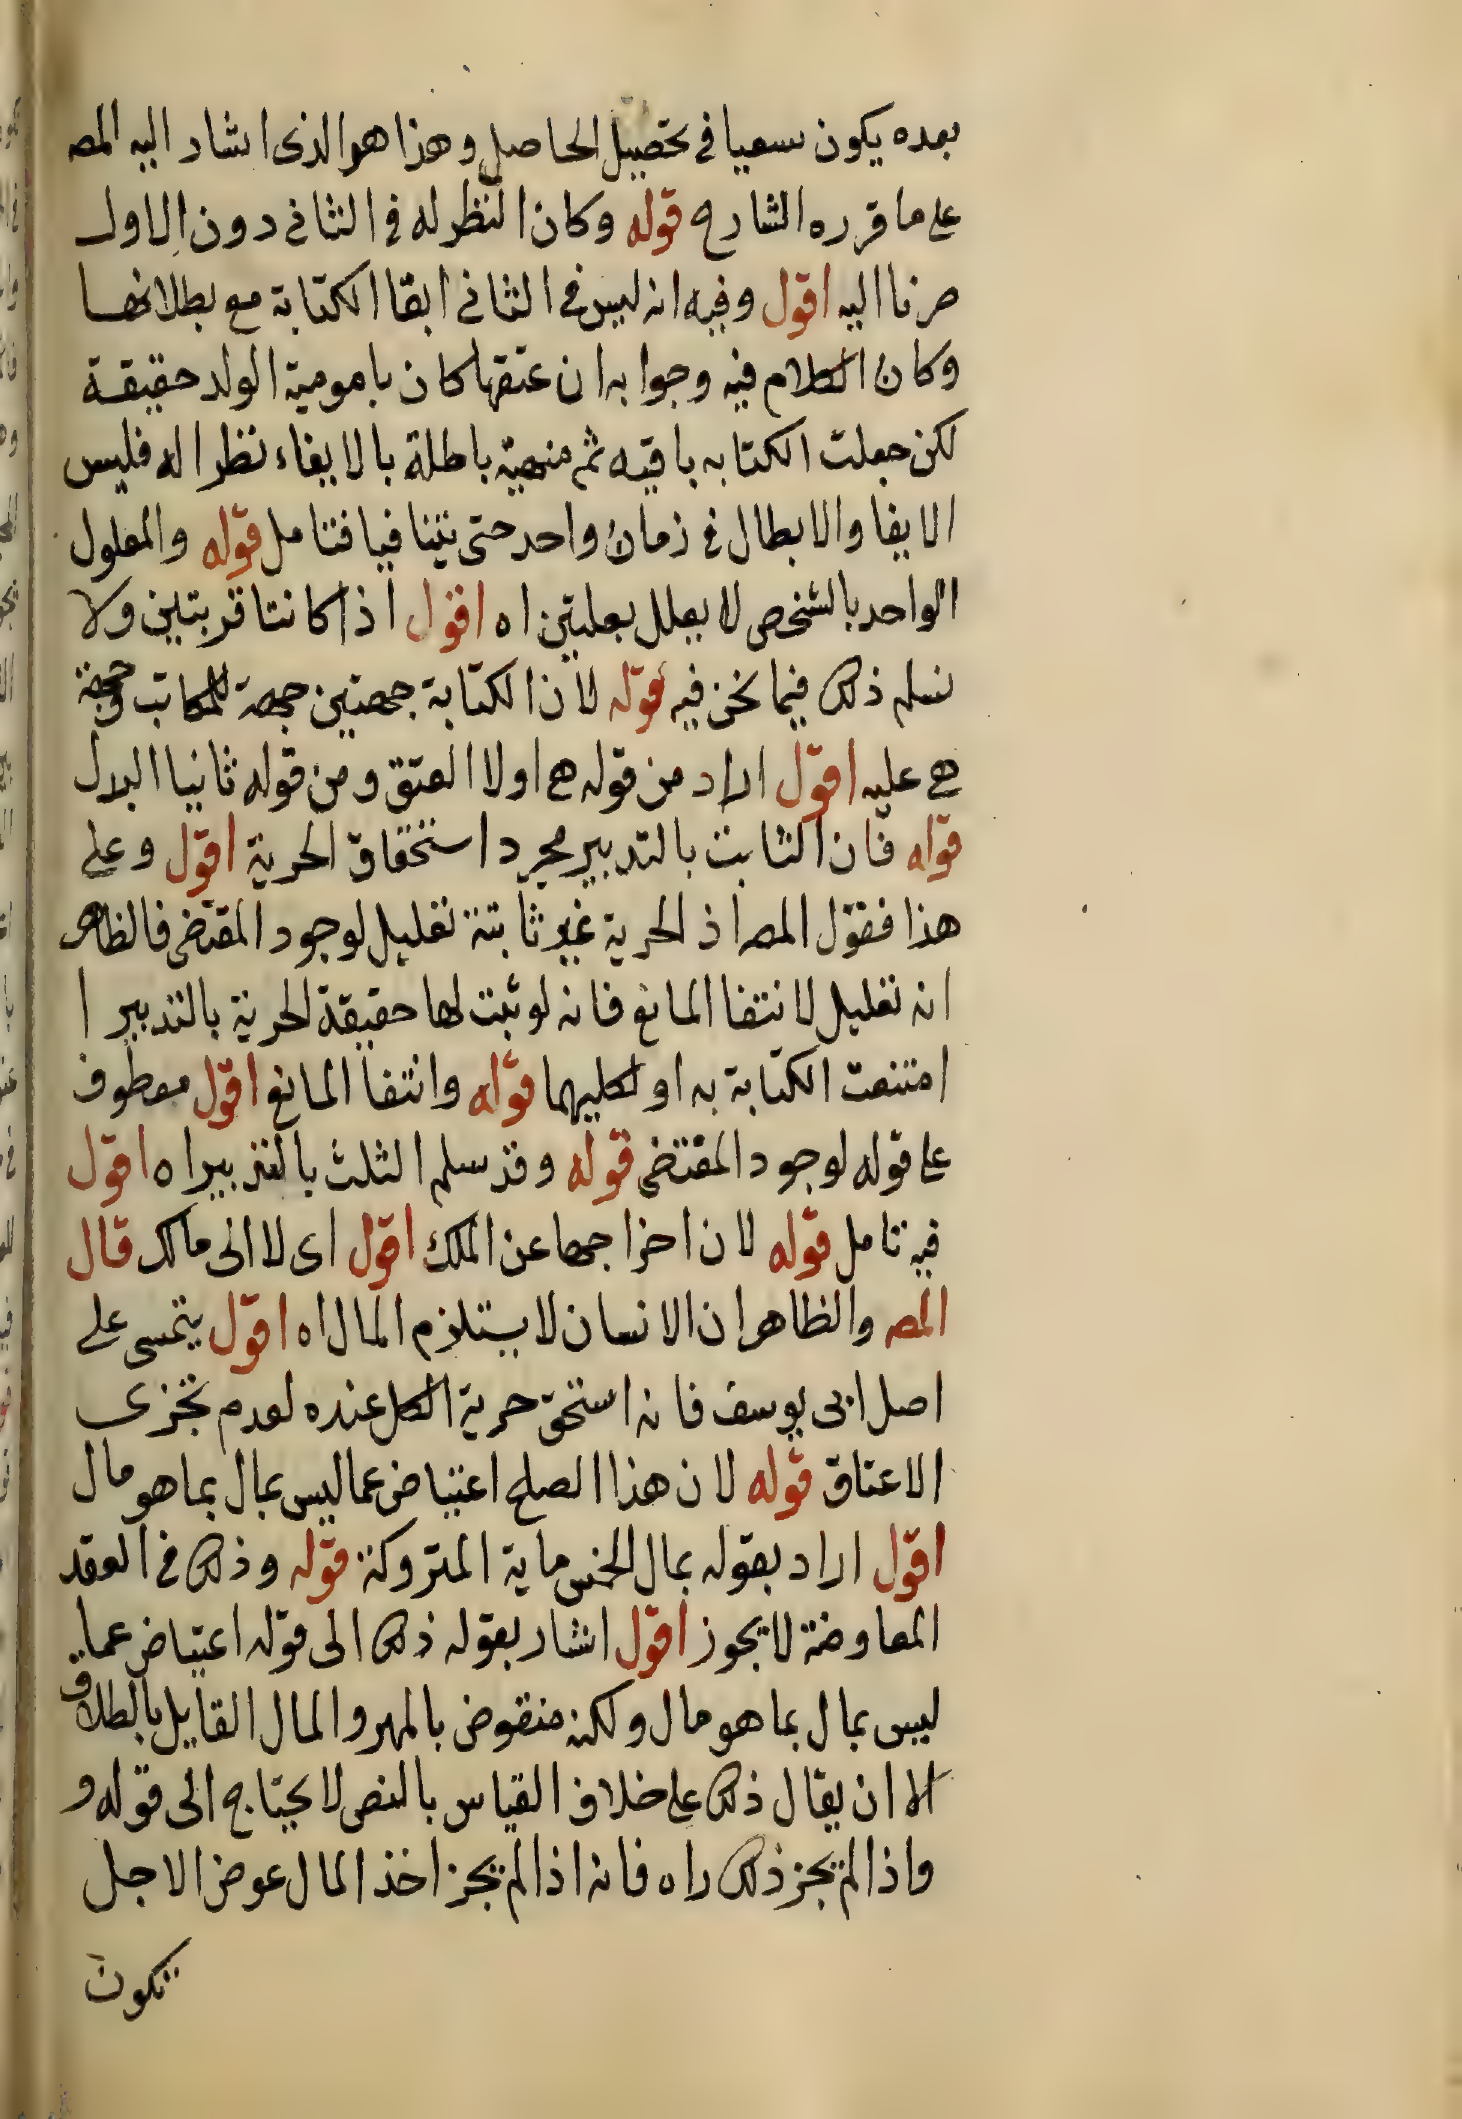 بعده يكون سعيا في تحصيل الحاصل وهذا هو الذى اشار اليه المص
على ما قرره الشارح قوله وكان النظر له في الثاني دون الاول
صرنا اليه اقول وفيه انه ليس في الثاني ابقا الكتابة مع بطلانها
وكان الكلام فيه وجوابه ان عتقها كان بامومية الولد حقيقة
لكن جعلت الكتابه باقيه ثم منهية باطلة بالايفاء نظرا له فليس
الايفا والابطال في زمان واحد حتى يتنافيا فتامل قوله والمعلول
الواحد بالشخص لا يعلل بعلتين اه اقول اذا كانتا قريبتين ولا
نسلم ذلك فيما نحن فيه قوله لان الكتابة جهتين جهة للمكاتب وجهة
هي عليه اقول اراد من قوله هي اولا العتق ومن قوله ثانيا البدل
قوله فان الثابت بالتدبير مجرد استحقاق الحرية اقول وعلى
هذا فقول المص اذ الحرية غير ثابتة تعليل لوجود المقتضى فالظاهر
انه تعليل لانتفا المانع فانه لو ثبت لها حقيقة الحرية بالتدبير ا
امتنعت الكتابة به او لكليهما قوله وانتفا المانع اقول معطوف
على قوله لوجود المقتضى قوله وقد سلم الثلث بالتدبير اه اقول
فيه تامل قوله لان اخراجها عن الملك اقول اى لا الى مالك قال
المص والظاهر ان الانسان لا يستلزم المال اه اقول يتمسى على
اصل ابى يوسف فانه استحق حرية الكل عنده لعدم تجزى
الاعتاق قوله لان هذا الصلح اعتياض عما ليس بمال بما هو مال
اقول اراد بقوله بمال الخمس ماية المتروكة قوله وذلك في العقد
المعاوضة لا يجوز اقول اشار بقوله ذلك الى قوله اعتياض عما
ليس بمال بما هو مال ولكنه منقوض بالمهر والمال القايل بالطلاق
الا ان يقال ذلك على خلاف القياس بالنص لا يحتاج الى قوله و
واذا لم يجز ذلك راه فانه اذا لم يجز اخذ المال عوض الاجل
تكون